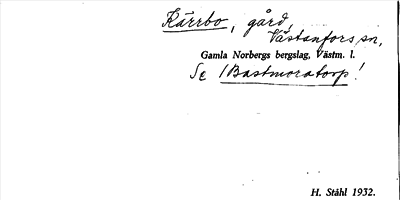 Kärrbo, gård,
Västanfors sn,
Gamla Norbergs bergslag, Västm. l.
Se /Bastmoratorp!
H. Ståhl 1932.